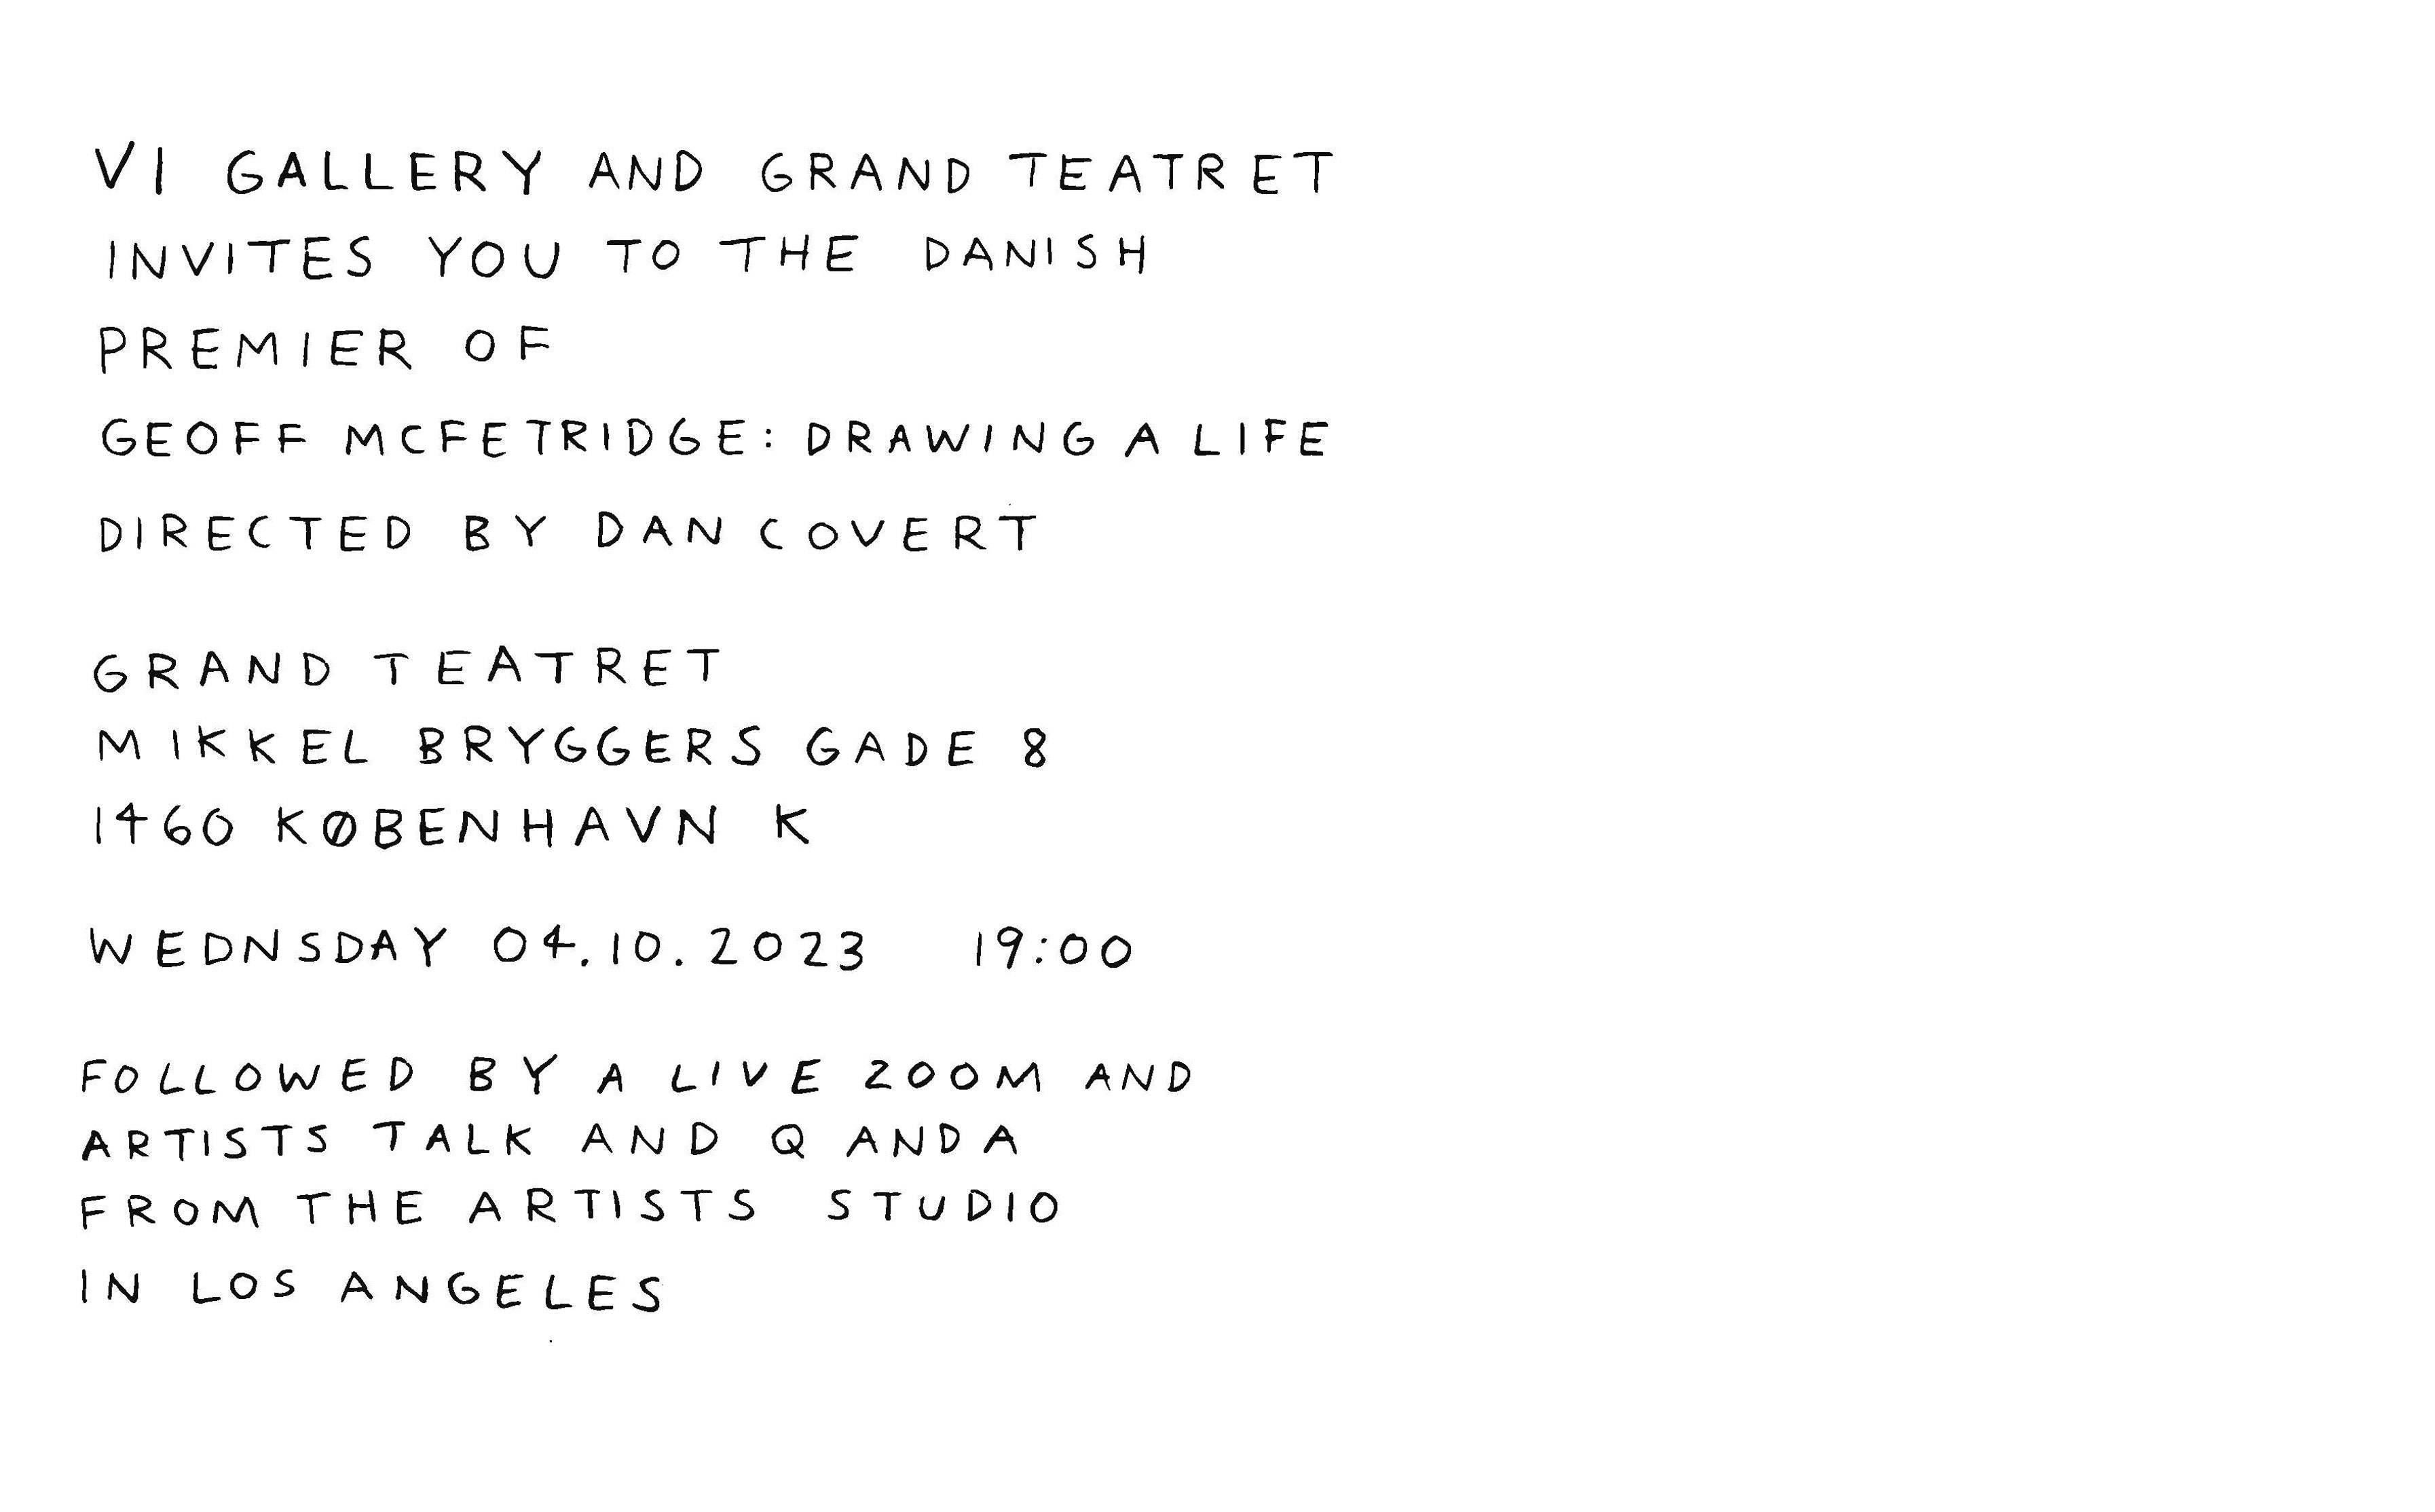 VI GALLERY AND GRAND TEATRET
INVITES YOU TO THE DANISH
PREMIER OF
GEOFF MCFETRIDGE: DRAWING A LIFE
DIRECTED BY DAN COVERT
GRAND TEATRET
MIKKEL BRYGGERS GADE 8
1460 KØBENHAVN K
WEDNSDAY 04.10.2023 19:00
FOLLOWED BY A LIVE ZOOM AND
ARTISTS TALK AND Q AND A
FROM THE ARTISTS STUDIO
IN LOS ANGELES